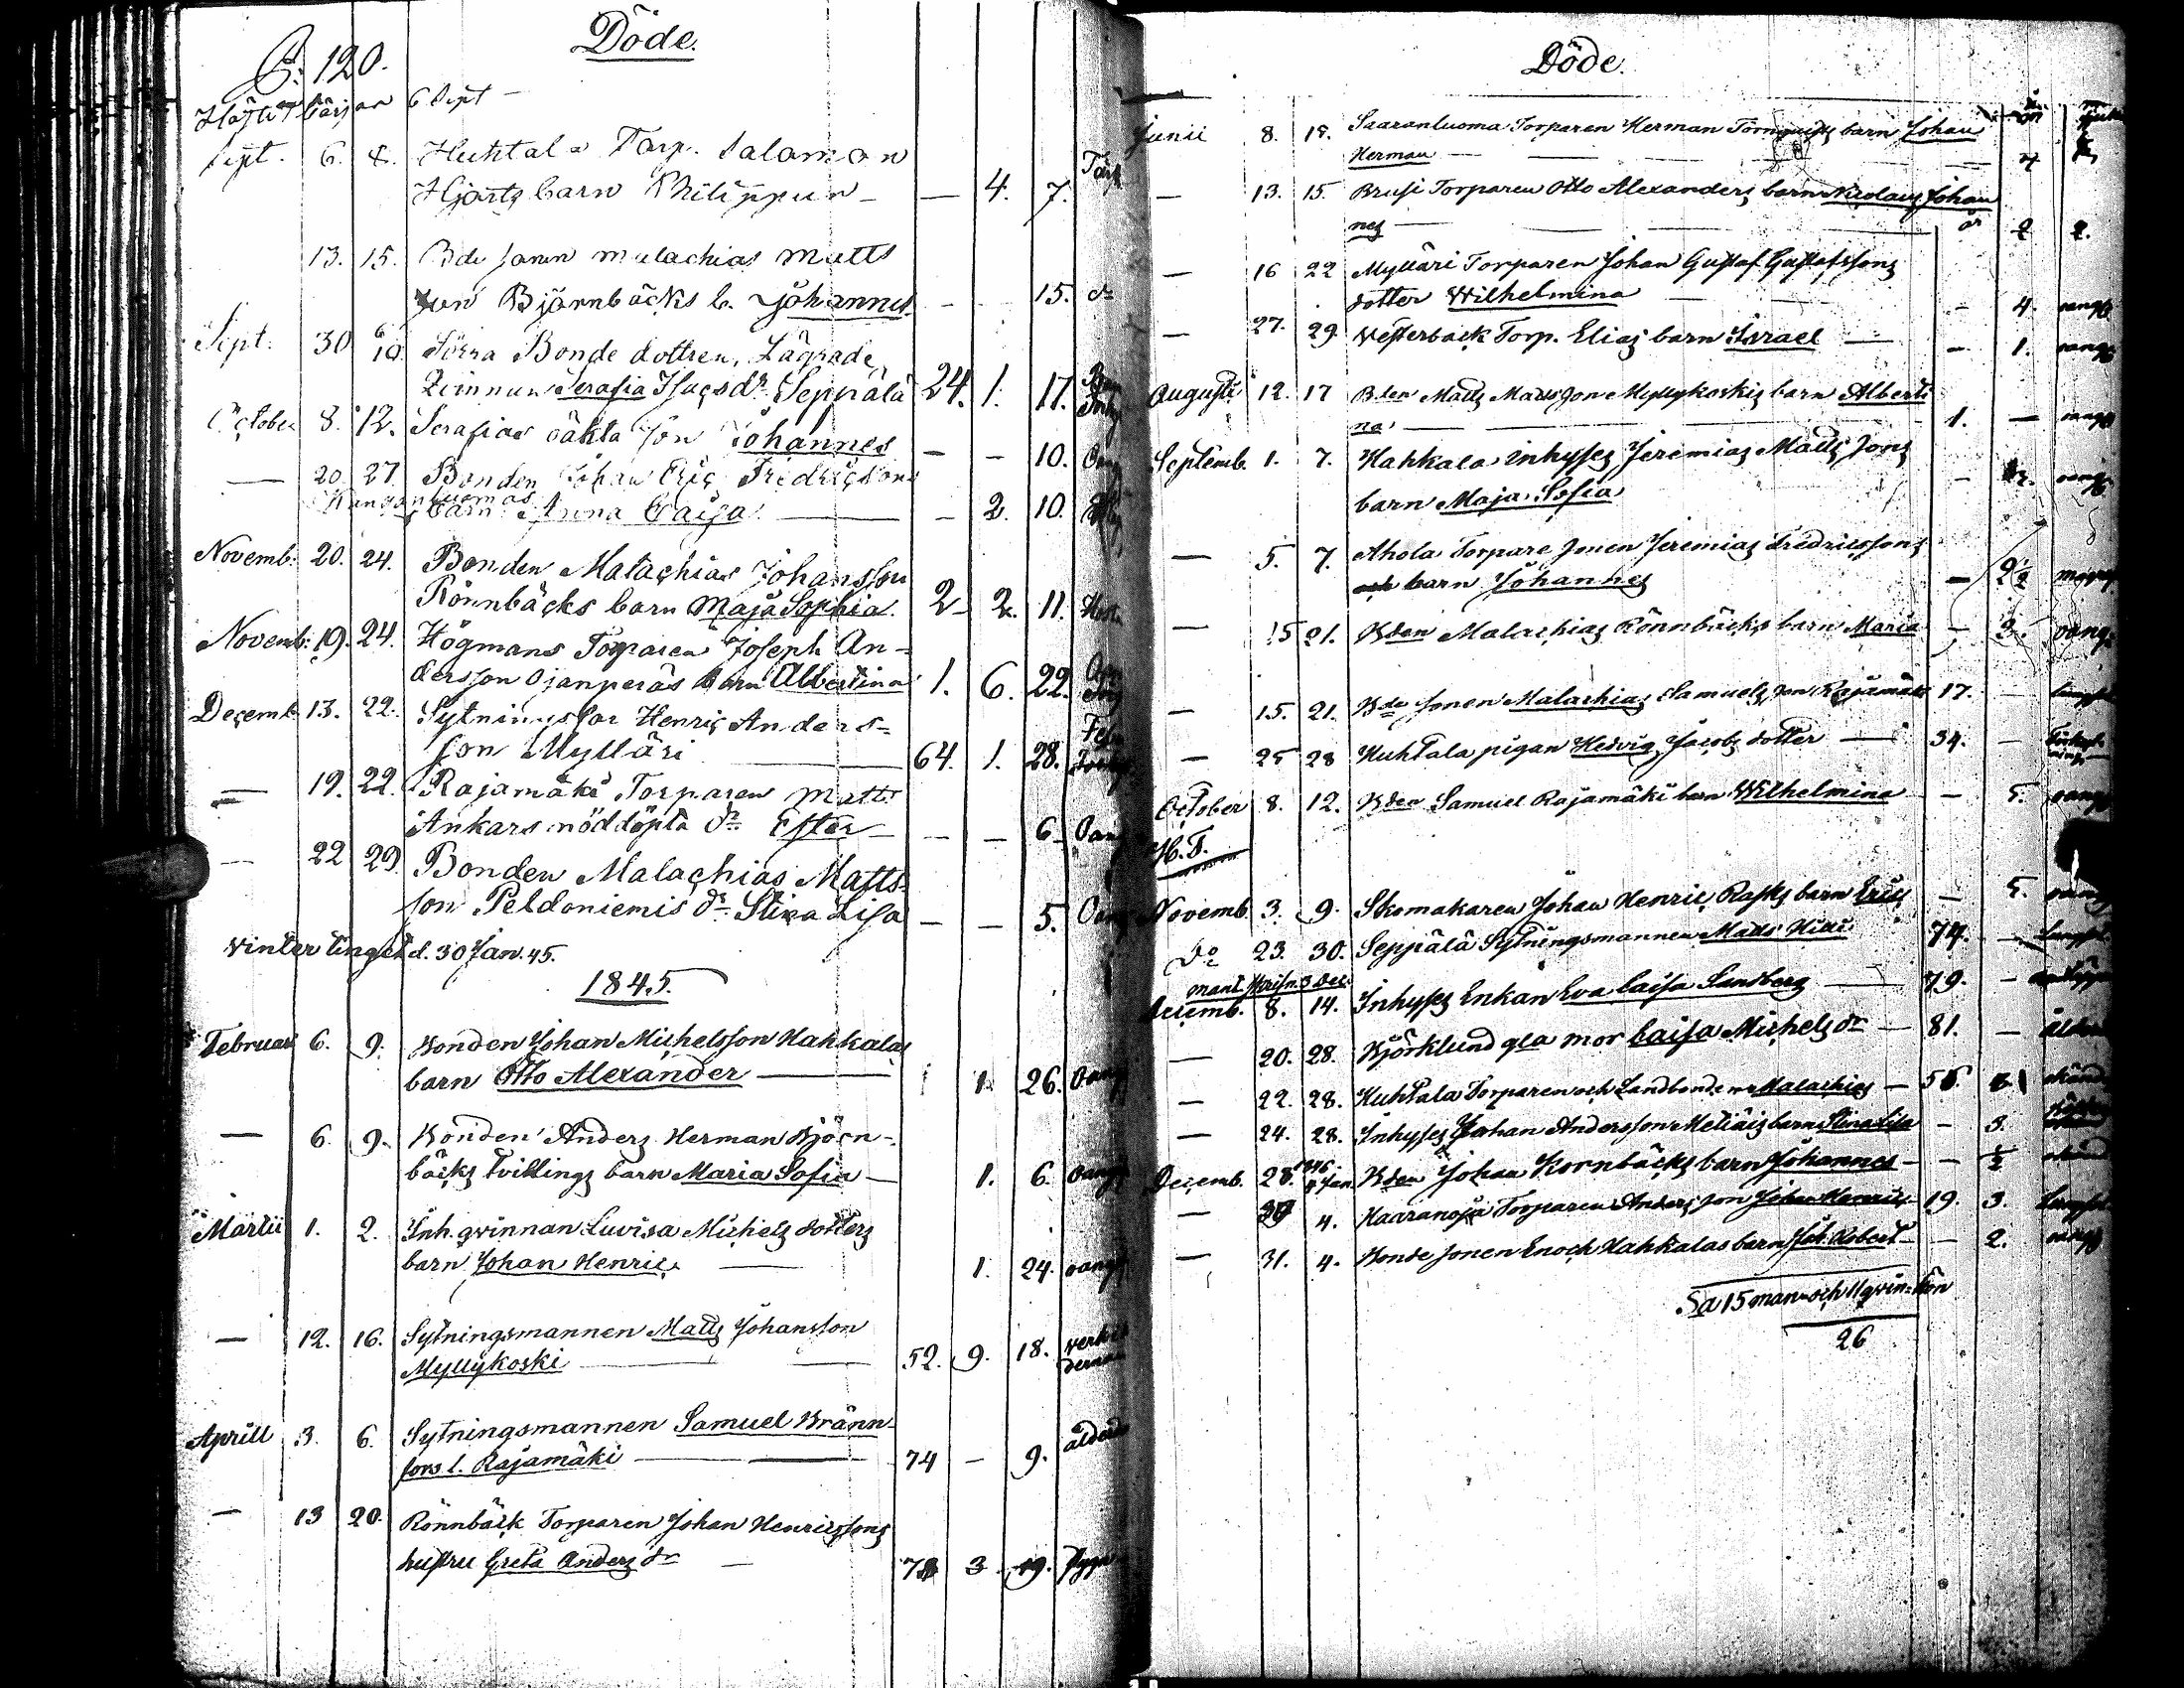 Döde.
P. 120.
Hösttt. börjar 6 Sept
Sept. 6. 8. Huhtala Torp. Salomon
Hjorts barn Philippus — — 4. 7.
13. 15. Bde sonen Malachias Matts
son Björnbäcks b. Johannes — 15. do
Sept. 30 6/10 Förra Bonde dottren, Lägrade
Qvinnan Serafia Isacs dr Seppälä 24. 1. 17.
October 8. 12. Serafias oäkta son Johannes — — 10.
— 20. 27. Bonden Johan Eric Fredricsons
Kangasluomas barn Anna Caisa — — 2. 10.
Novemb. 20. 24. Bonden Malachias Johansson
Rönnbäcks barn Maja Sophia. 2 2. 11.
Novemb: 19. 24. Högmans Torparen Joseph An-
dersson Ojanperäs barn Albertina 1. 6. 22.
Decemb. 13. 22. Sytningsfar Henric Anders=
son Mylläri — 64. 1. 28.
— 19. 22. Rajamäki Torparen Matts
Ankars nöddöpta dr Ester — — — 6
— 22 29. Bonden Malachias Matts-
son Peldoniemis dr Stina Lisa — — 5.
Vinter tinget d. 30 Jan. 45.
1845.
Februari 6. 9. Bonden Johan Michelsson Hahkalas
barn Otto Alexander — 1. 26.
— 6. 9. Bonden Anders Herman Björn-
bäcks tvillings barn Maria Sofia — 1. 6. oang
Martii 1. 2. Inh. qvinnan Lovisa Michels dotters
barn Johan Henric — 1. 24. oang
— 12. 16. Sytningsmannen Matts Johansson
Myllykoski — 52. 9. 18.
Aprill 3. 6. Sytningsmannen Samuel Bränn-
fors l. Rajamäki — 74 — 9.
— 13 20. Rönnbäck Torparen Johan Henricssons
hustru Greta Anders dr — 3. 19.
Döde.
Junii 8. 15. Saaranluoma Torparen Herman Törnquists barn Johan
Herman —
— 13. 15. Brusi Torparen Otto Alexanders barn Nicolaus Johan
nes — 2 2.
— 16 22 Mylläri Torparen Johan Gustaf Gustafssons
dotter Wilhelmina — 4. oang
— 27. 29. Westerback Torp. Elias barn Israel — 1. oang
Augusti 12. 17 Bden Matts Mattsson Myllykoskis barn Alberti
na — 1. — oang
Septemb. 1. 7. Hahkala inhyses Jeremias Matts sons
barn Maja Sofia — oang
— 5. 7. Ahola Torpare sonen Jeremias Fredricssons
och barn Johannes — 2½
— 15 21. Bden Malachias Rönnbäcks barn Maria — oang
— 15. 21. Bde sonen Malachias Samuels son Rajamäki 17. —
— 25 28 Huhtala pigan Hedvig Jacobs dotter — 34. —
October 8. 12. Bden Samuel Rajamäki barn Wilhelmina — — 5. oang
H. T.
Novemb. 3. 9. Skomakaren Johan Henric Rasks barn Eric — 5. oang
Do 23. 30. Seppälä Sytningsmannen Matts 74. —
3 Dec.
Decemb. 8. 14. Inhyses Enkan Eva Caisa Sandberg — 79. —
— 20. 28. Björklund gla mor Caisa Michels dr — 81. —
— 22. 28. Huhtala Torparen och Landbonden Malachias —
— 24. 28. Inhyses Johan Andersson Metiäis barn Stina Lisa — 3.
Decemb. 28. 1846 4 Jan. Bden Johan Kornbäcks barn Johannes — — ½
— 30 4. Haaranoja Torparen Anders son Johan Henric 19. 3.
— 31. 4. Bonde sonen Enoch Hahkalas barn Joh. Robert — — 2. oang
Sa 15 man- och 11 qvin: kön
26